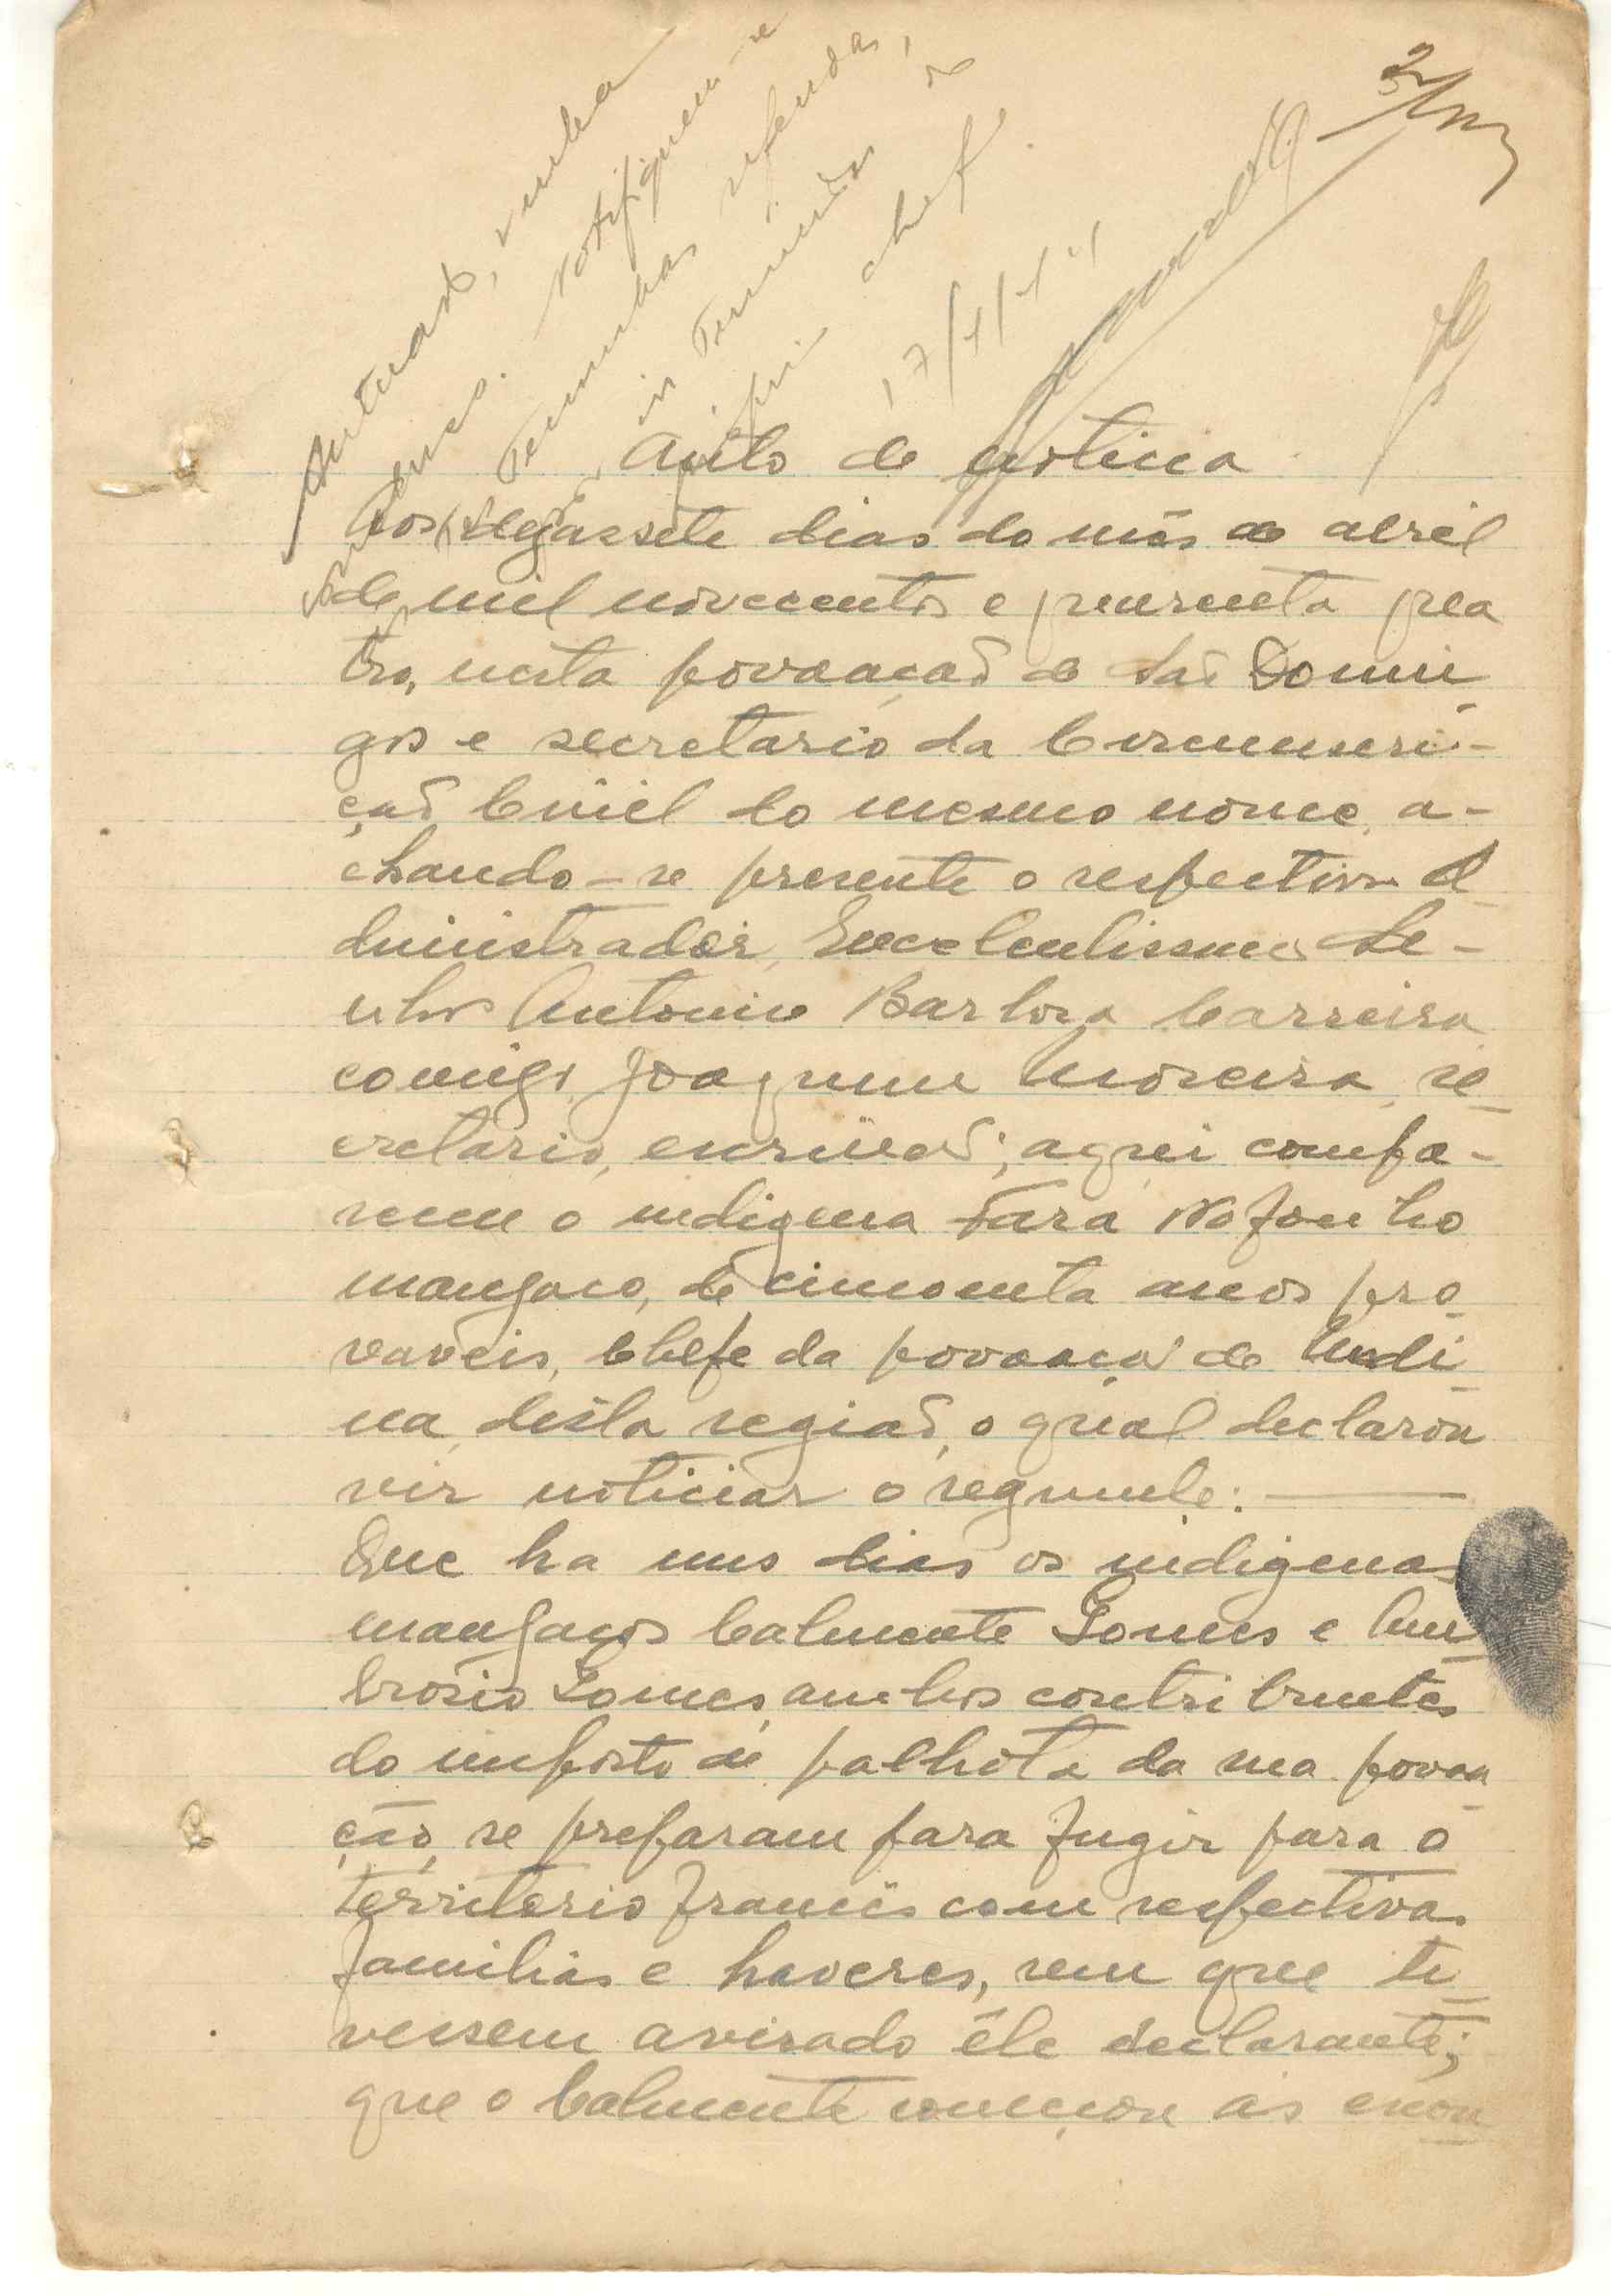 2
Autuado, venha
Notifiquem-se
17/4/44
Auto de noticia
Aos dezassete dias do mês de abril
de mil novecentos e quarenta qua
tro, nesta povoação de São Domin
gos e secretaria da Circunscri-
ção Civil do mesmo nome, a-
chando-se presente o respectivo A
dministrador, Excelentissimo Se-
nhor Antonio Barbosa Carreira
comigo, Joaquim Moreira, se
cretario, escrivão; aqui compa-
receu o indigena
manjaco, de cincoenta anos pro
vaveis, Chefe da povoação de
na desta região, o qual declarou
vir noticiar o seguinte:
Que ha uns dias os indigenas
manjacos Calmente Gomes e Am
brosio Gomes, ambos contribuintes
do imposto de palhota da sua povoa
ção, se preparam para fugir para o
territorio francês com respectivas
familias e haveres, sem que ti
vessem avisado êle declarante;
que o Calmente começou ás escon